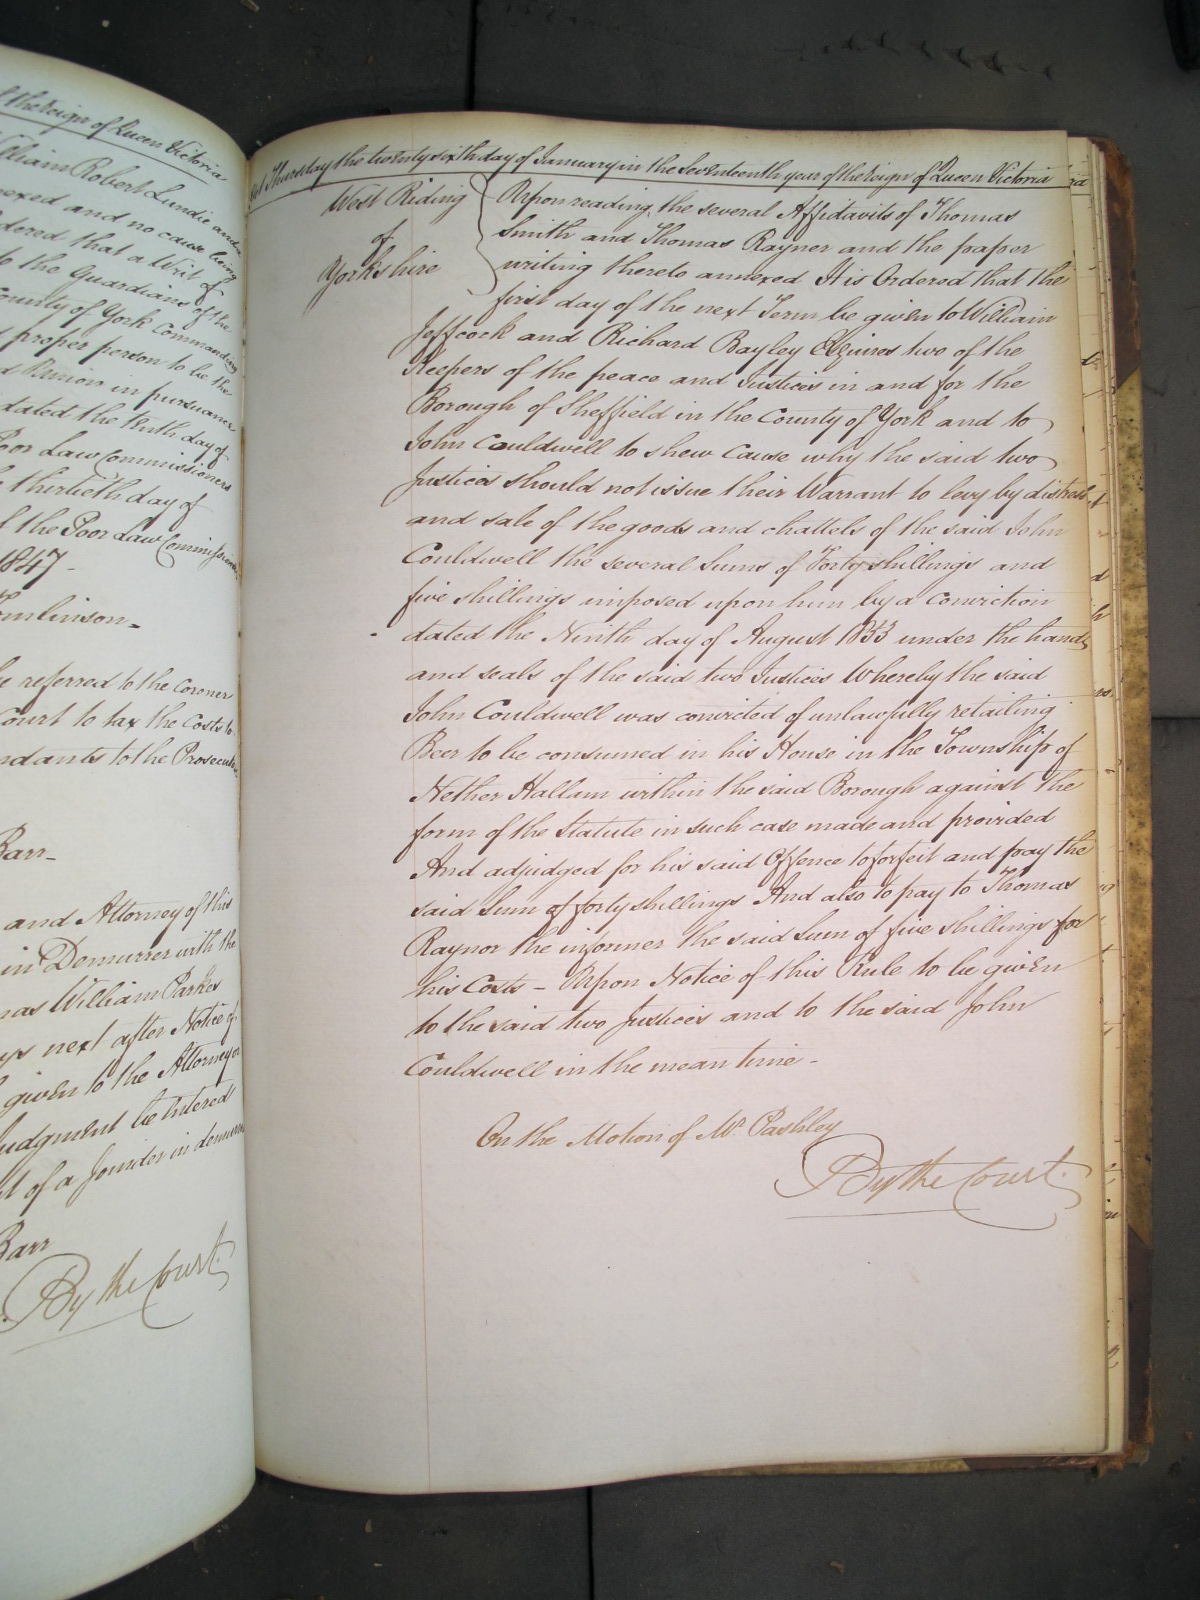 f the reign of Queen Victoria
William Robert Lundie and
nexed and no cause being
dered that a Writ of
to the Guardians of the
County of York Commanding
proper person to be the
Union in pursuance
dated the tenth day of
Poor Law Commissioners
thirtieth day of
the Poor Law Commissioners
1847 -
Tomlinson -
be referred to the Coroner
Court to tax the Costs to
ndants to the Prosecutor
Barr -
and Attorney of this
in Demurrer with the
William Parker
ys next after Notice of
given to the Attorney or
Judgment be entered
t of a Joinder in demurrer
Barr
By the Court.
Thursday the twenty sixth day of January in the seventeenth year of the reign of Queen Victoria
West Riding
of
Yorkshire
Upon reading the several Affidavits of Thomas
Smith and Thomas Raynor and the paper
writing thereto annexed It is Ordered that the
first day of the next Term be given to William
Jeffcock and Richard Bayley Esquires two of the
Keepers of the peace and Justices in and for the
Borough of Sheffield in the County of York and to
John Couldwell to shew Cause why the said two
Justices should not issue their Warrant to levy by distress
and sale of the goods and chattels of the said John
Couldwell the several Sums of Forty shillings and
five shillings imposed upon him by a Conviction
dated the Ninth day of August 1853 under the hands
and seals of the said two Justices Whereby the said
John Couldwell was convicted of unlawfully retailing
Beer to be consumed in his House in the Township of
Nether Hallam within the said Borough against the
form of the Statute in such case made and provided
And adjudged for his said Offence to forfeit and pay the
said Sum of forty shillings And also to pay to Thomas
Raynor the informer the said Sum of five shillings for
his Costs - Upon Notice of this Rule to be given
to the said two Justices and to the said John
Couldwell in the mean time -
On the Motion of Mr. Pashley
By the Court.